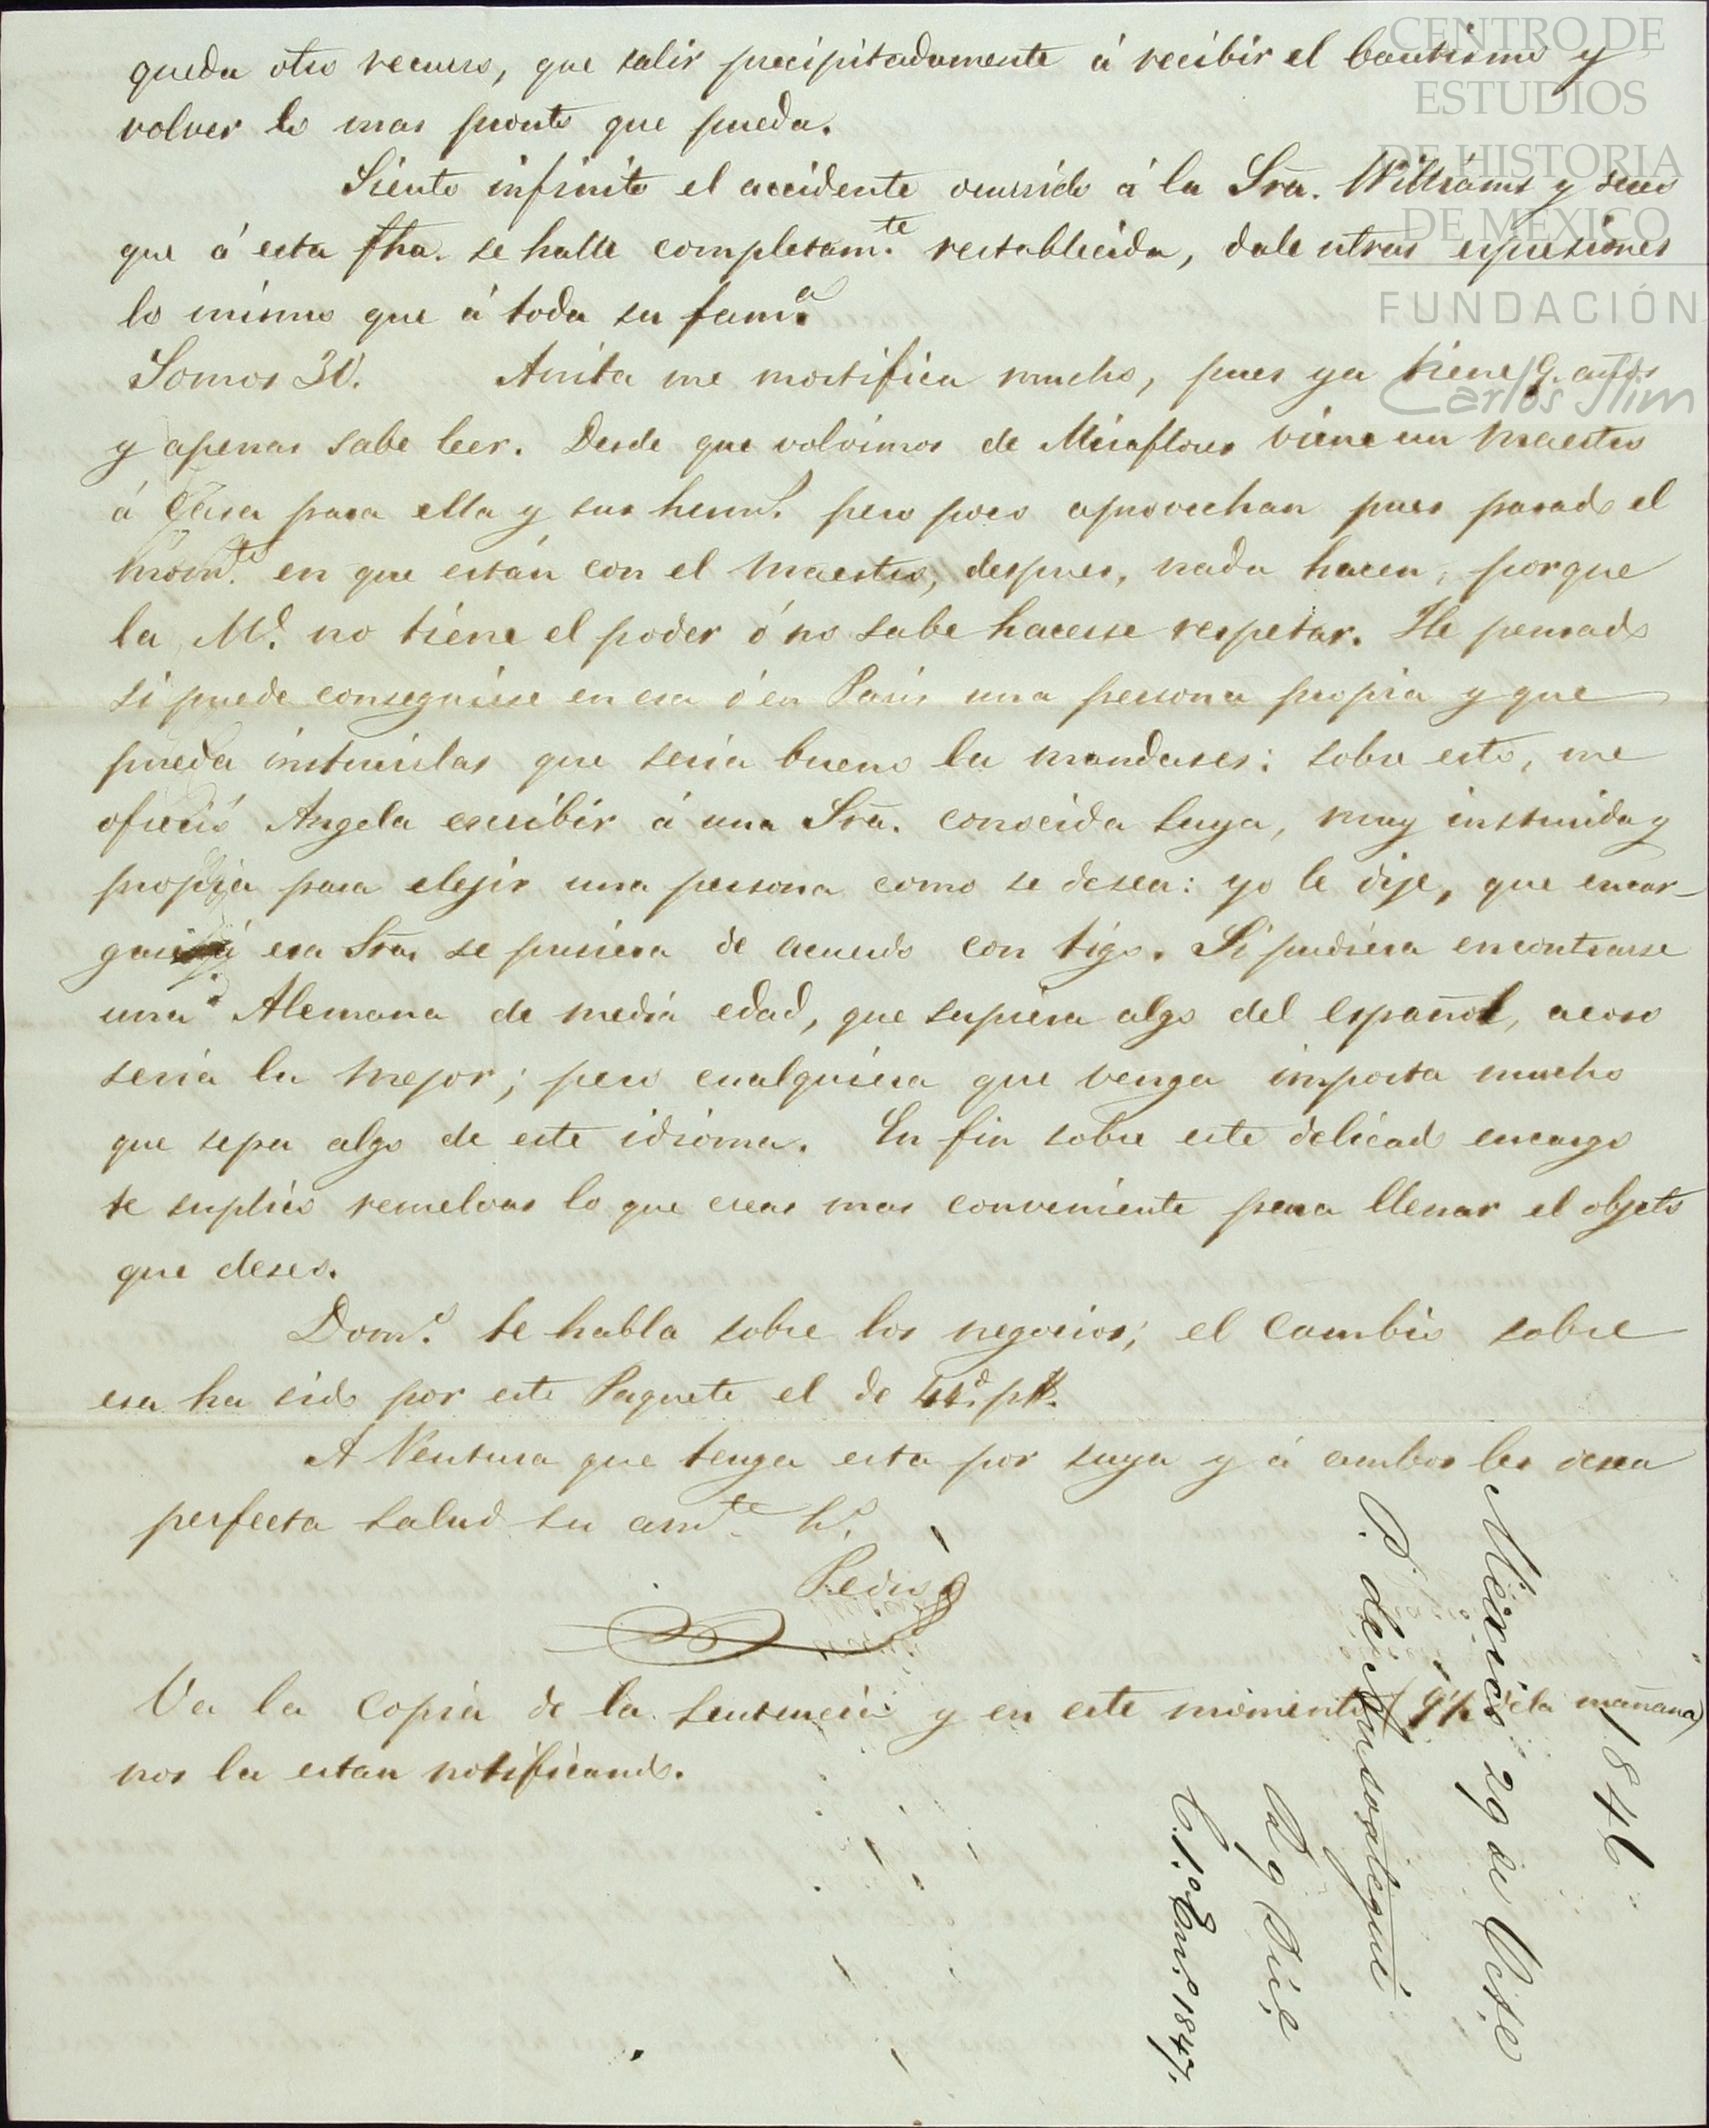 queda otro recurso, que salir precipitadamente á recibir el bautismo y
volver lo mas pronto que pueda.
Siento infinito el accidente ocurrido á la Sra. Williams y deseo
que á esta fha. se halle completam.te restablecida, dale ntras espresiones
lo mismo que á toda su fam.a
Somos 30. Anita me mortifica mucho, pues ya tiene 9. años
y apenas sabe leer. Desde que volvimos de Miraflores viene un maestro
á Casa para ella y sus herm.s pero poco aprovechan pues pasado el
mom.to en que están con el maestro, despues, nada hacen, porque
la M.e no tiene el poder ó no sabe hacerse respetar. He pensado
si puede conseguirse en esa ó en Paris una persona propia y que
pueda instruirlas que seria bueno la mandases: sobre esto, me
ofreció Angela escribir á una Sra. conocida suya, muy instruida y
propia para elejir una persona como se desea: yo le dije, que encar-
esa Sra. se pusiera de acuerdo con tigo. Si pudiera encontrarse
una Alemana de media edad, que supiera algo del español, acaso
seria la mejor; pero cualquiera que venga importa mucho
que sepa algo de este idioma. En fin sobre este delicado encargo
te suplico resuelvas lo que creas mas conveniente para llenar el objeto
que deseo.
Dom.o te habla sobre los negocios; el cambio sobre
esa ha sido por este Paquete el de 44.d p$.
A Ventura que tenga esta por suya y á ambos les desea
perfecta salud su am.te h.o
Pedro
Va la copia de la sentencia y en este momento (9½ de la mañana)
nos la estan notificando.
1846
Mexico 29 de Oct.e
P. de Ansoategui
R. 9 Dic.e
C. 1.o En.o 1847.
CENTRO DE
ESTUDIOS
DE HISTORIA
DE MEXICO
FUNDACIÓN
Carlos Slim